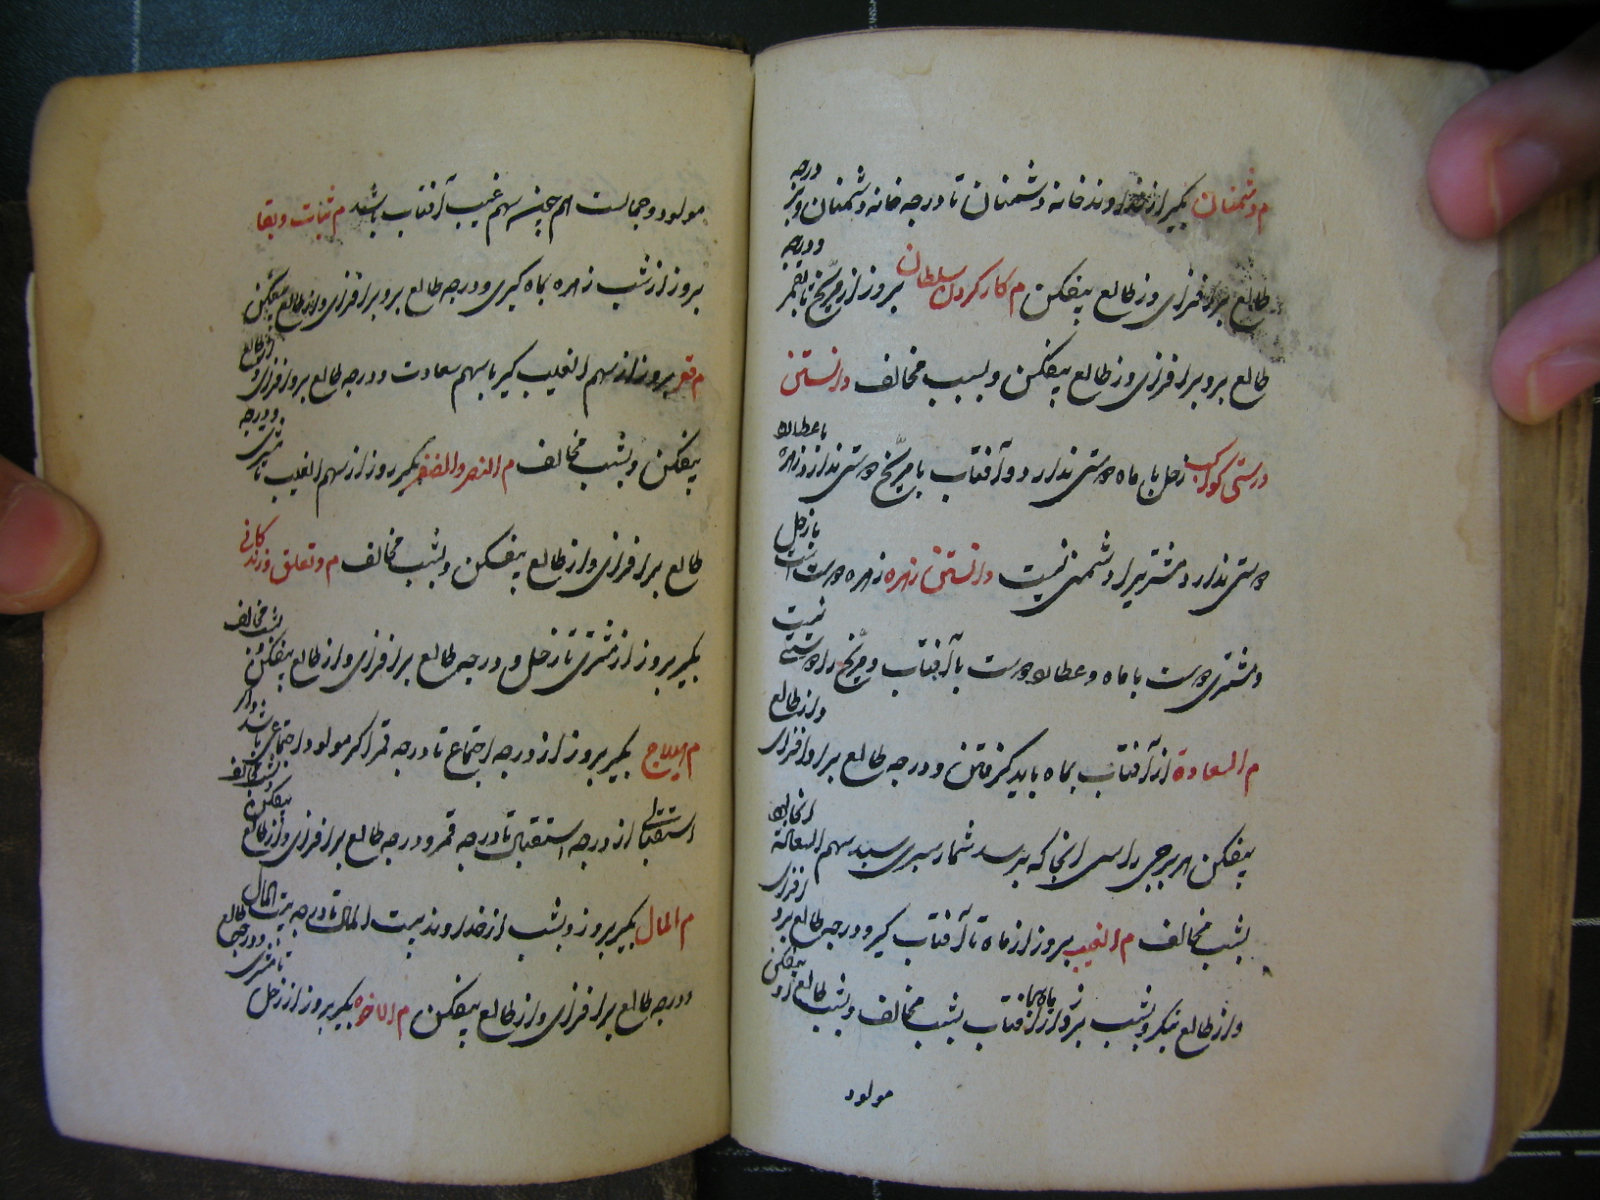 م دشمنان بگیر از خداوند خانه دشمنان تا درجه خانه دشمنان و بر درجه
طالع برافزای وز طالع بیفکن م کار کردن سلطان بروز از مریخ تا بقمر و درجه
طالع برو برافزای وز طالع بیفکن و بشب مخالف دانستن
درستی کواکب زحل با ماه دوستی ندارد و آفتاب با مریخ دوستی ندارد زهره با عطارد
دوستی ندارد مشتریرا دشمنی نیست دانستن زهره زهره دوست است با زحل
و مشتری دوست با ماه و عطارد دوست با آفتاب و مریخ را دوستی نیست
م السعادة از آفتاب بماه باید گرفتن و درجه طالع برو افزای و از طالع
بیفکن هر برجی راسی انجا که برسد شمار سپری سید سهم السعادة انجا بود
بشب مخالف م الغیب بروز از ماه تا آفتاب گیر و درجه طالع برو افزای
و از طالع بشب بروز از آفتاب بشب مخالف و بشب طالع از و بیفکن
مولود
مولود و جمالست هم چنین سهم غیب آفتاب باشد م ثبات و بقا
بروز از شب زهره بماه گیری و درجه طالع برو برافزای و از طالع بیفکن
م بروز از سهم الغیب گیر تا سهم سعادت و درجه طالع برو افزای و از طالع
بیفکن و بشب مخالف م النصر والظفر بگیر بروز از سهم الغیب تا مشتری و درجه
طالع برافزای و از طالع بیفکن و بشب مخالف م و تعلق و زندکانی
بگیر بروز از مشتری تا زحل و درجه طالع برافزای و از طالع بیفکن و بشب مخالف
م هیلاج بگیر بروز از درجه اجتماع تا درجه قمر اگر مولود اجتماعی باشد و اگر
استقبالی از درجه استقبال تا درجه قمر و درجه طالع برافزای و از طالع بیفکن و بشب مخالف
م المال بگیر بروز و بشب از خداوند بیت المال تا درجه بیت المال و درجه طالع
و درجه طالع برافزای و از طالع بیفکن م الاخوه بگیر بروز از زحل تا مشتری